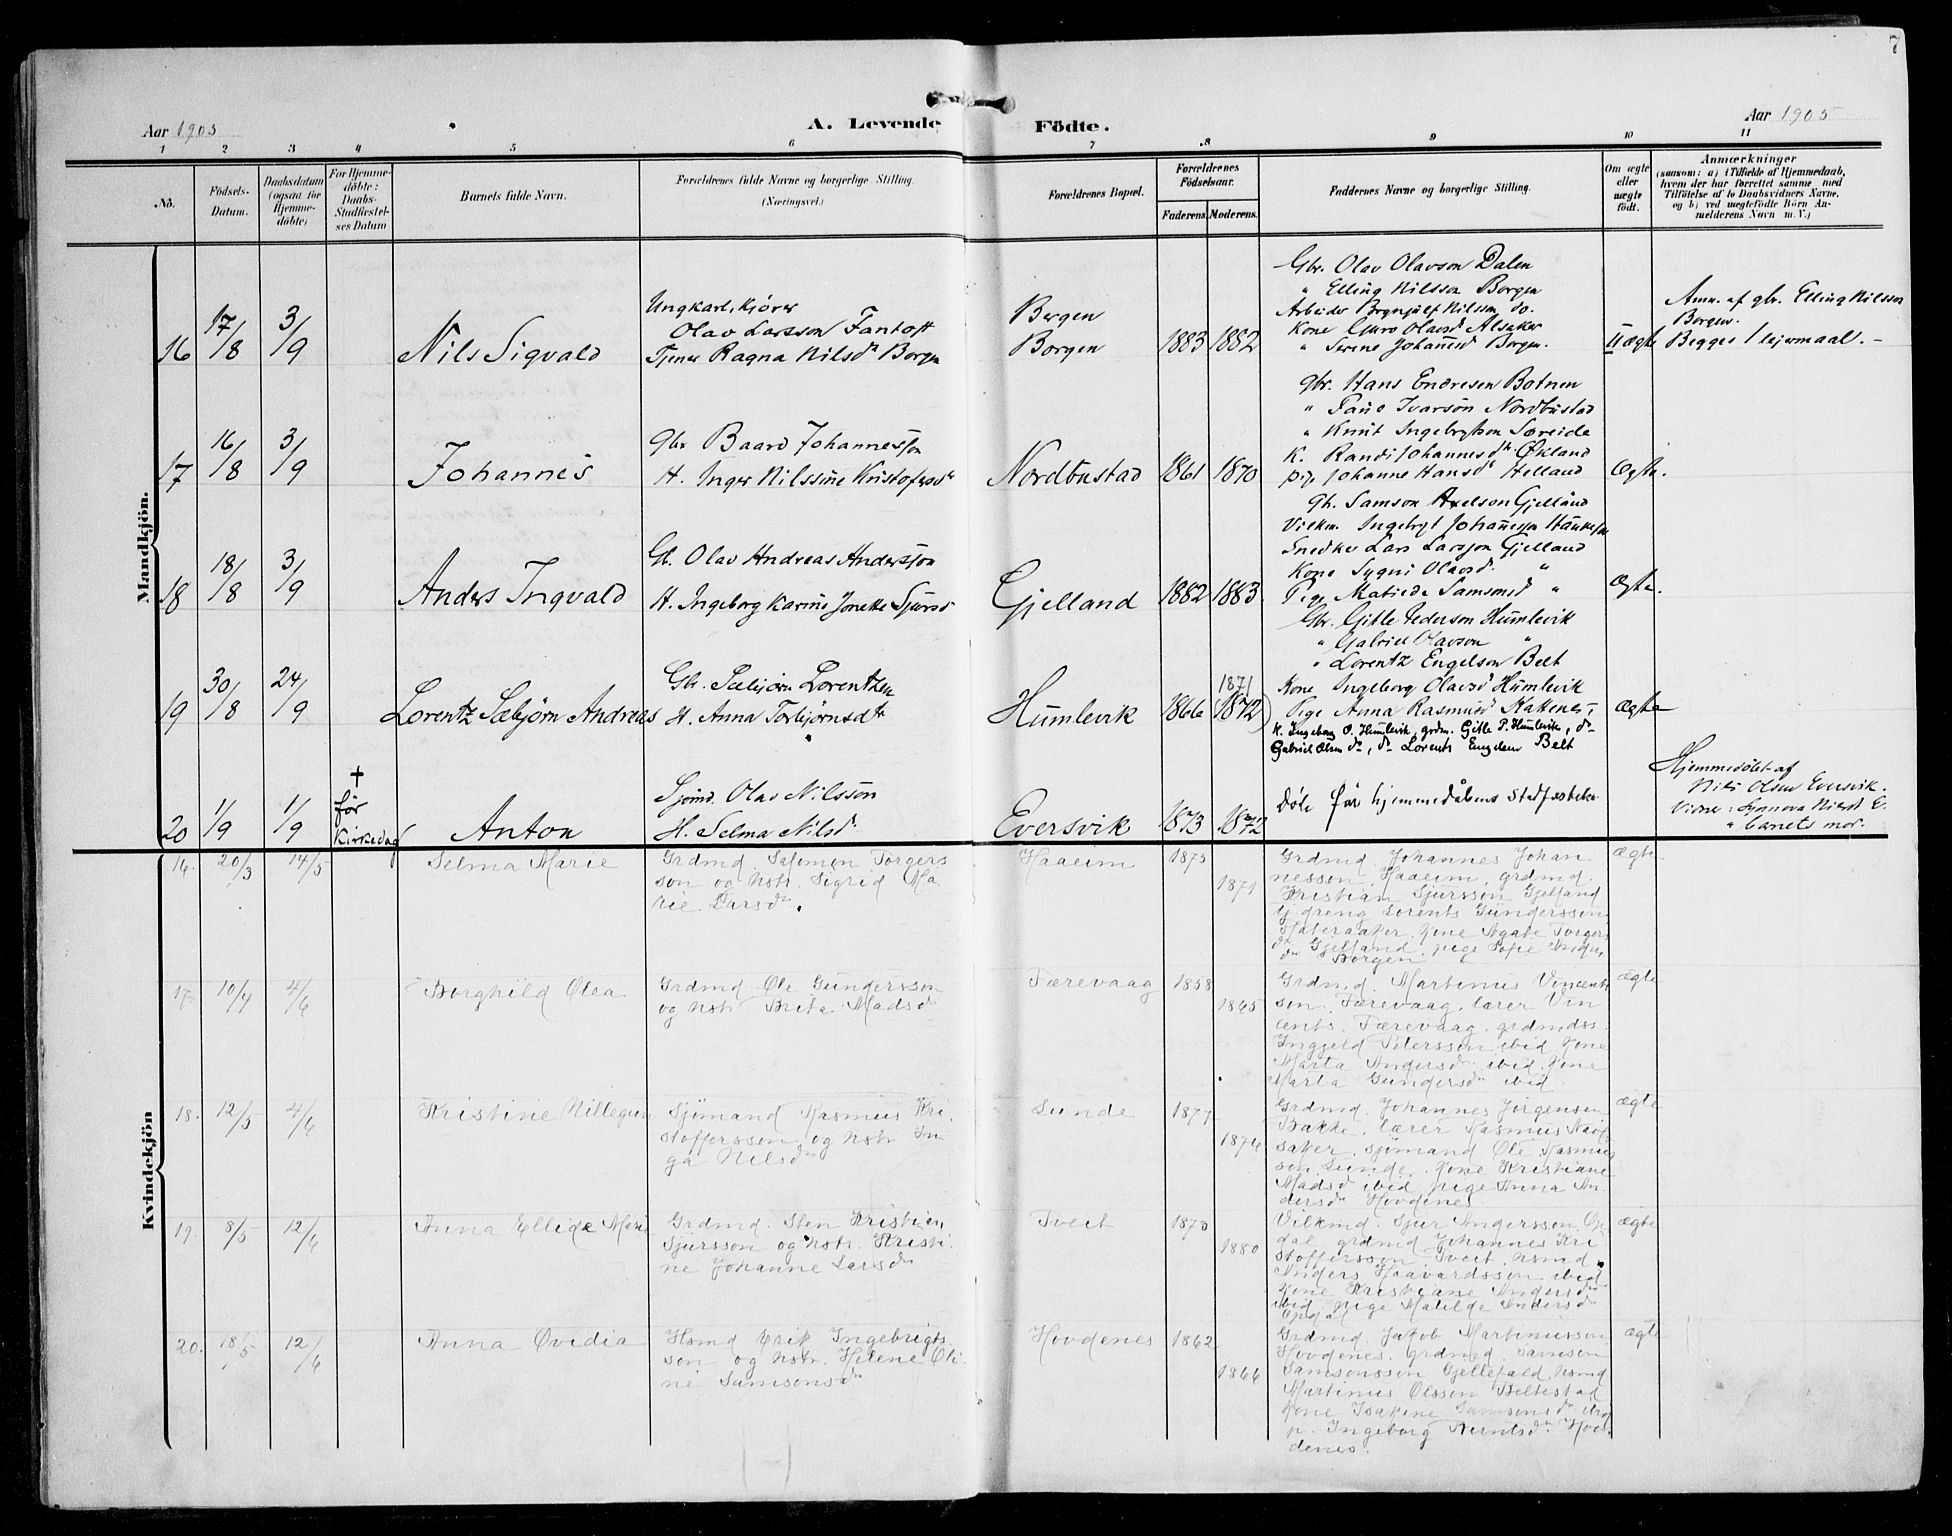 7
Aar 1905
A. Levende Födte.
Aar 1905
1 2 3 4 5 6 7 8 9 10 11
No.
Födsels-Datum.
Daabsdatum (ogsaa for Hjemmedöbte)
For Hjemmedöbte: Daabs-Stadfæstelses Datum
Barnets fulde Navn.
Forældrenes fulde Navne og borgerlige Stilling. (Næringsvei.)
Forældrenes Bopæl.
Forældrenes Födselsaar.
Faderens. Moderens.
Faddernes Navne og borgerlig Stilling.
Om ægte eller uægte födt.
Anmærkninger
(saasom: a) i Tilfælde af Hjemmedaab,
hvem der har forrettet samme med
Tilföielse af to Daabsvidners Navne,
og b) ved uægtefödte Börn An-
melderens Navn m. V.)
Mandkjön.
16 17/8 3/9 Nils Sigvald
Ungkarl, kjører
Olav Larsson Fantoft
Tjener Ragna Nilsd. Borgen
Bergen
Borgen
1883 1882
Gbr. Olav Olavson Dalen
" Elling Nilsson Borgen
Arbeider Brynjulf Nilsson do.
Kone Guro Olavsd Alsaker
" Serine Johannesd Borgen.
Uægte
Anm. af gbr. Elling Nilsson
Borgen.
Begges 1 leiermaal. -
17 16/8 3/9 Johannes
Gbr Baard Johannesson
H. Inger Nilssine Kristofersdr
Nordbustad 1861 1870
gbr. Hans Endresen Botnen
" Ivarson Nordbustad
" Knut Ingebrigtson Søreide
K. Randi Johannesdtr Økland
pige Johanne Hansdr Helland
Ægte.
18 18/8 3/9 Anders Ingvald
Gb. Olav Andreas Andersson
H. Ingeborg Karine Jonette Sjursd
Gjelland 1882 1883.
gb. Samson Axelson Gjelland
Vilkm. Ingebrgt Johannesson
Snedker Lars Larsson Gjelland
Kone Sygni Olavsd. "
Pige Matilde Samsond "
Ægte.
19 30/8 24/9 Lorentz Sæbjørn Andreas
Gbr. Sæbjørn Lorentzen
H. Anna Torbjørnsdtr
Humlevik 1866 1871 1872)
Gbr. Gitle Pederson Humlevik
" Gabriel Olavson "
" Lorentz Engelson Belt
Kone Ingeborg Olavsd Humlevik
Pige Anna Rasmusd Stakenes,
K. Ingeborg O. Humlevik, grdm. Gitle P. Humlevik, do
Gabriel Olsen do, do Lorents Engelsen Belt
Ægte
20 1/9 1/9 + før Kirkedag Anton
Sjømd. Olav Nilsson
H. Selma Nilsd.
Eversvik 1873 1872
Døde før hjemmedåbens Stadfæstelse
Hjemmedøbt af
Nils Olsen Eversvik.
Vidne: Synnøva Nilsd E.
" barnets mor.
Kvindekjön
16. 20/3 14/5 Selma Marie
Grdmd. Salomon Torgers
son og hstr. Sigrid Ma-
rie Larsdr.
Haaeim 1875 1871
Grdmd. Johannes Johan
nessen Haaeim, grdmd.
Kristian Sjursson Gjelland
tj. dreng Lorents Gundersson
kone Agate Torgers
dr Gjelland, pige Sofie
Borgen
Ægte
17. 10/4 4/6 Borghild Olea
Grdmd Ole Gundersson
og hstr Brita Madsdr
Færevaag 1858 1865
Grdmd. Martinus Vincents
son. Færevaag, lærer Vin
cents. Færevaag, grdmdss.
Ingjeld Petersson ibid, kone
Marta Andersdr ibid, kone
Marta Gundersdr ibid
Ægte
18. 12/5 4/6 Kristine Nillegun
Sjömand Rasmus Kri-
stofferssen og hstr In
ga Nilsdr
Sunde 1877 1876
Grdmd. Johannes Jörgensen
Bakke, lærer Rasmus
sjömand Ole Rasmus
son Sunde, kone Kristiane
Madsd ibid, pige Anna An
dersdr Hovdenes
ægte
19. 8/5 12/6 Anna Ellida Marie
Grdmd. Sten Kristian
Sjursson og hstr. Kristi-
ne Johanne Larsdr
Tveit 1873 1880
Vilkmd. Sjur Andersson Op
dal, grdmd Johannes Kri
stoffersson Tveit, hsmd
Anders Haavardsson ibid
kone Kristiane Andersdr
ibid, pige Matilde Andersd
Opdal
ægte
20. 18/5 12/6 Anna Ovidia
Hsmd Erik Ingebrigts
son og hstr. Helene Oli-
ne Samsonsdr
Hovdenes 1862 1866
Grdmd. Jakob Martinusson
Hovdenes, grdmd. Samson
Samsonsson Gjellefald, hsmd
Martinus Olsson Beltestad
kone Isakine Samsonsdr ibid
p. Ingeborg Berntsdr Hov
denes.
ægte